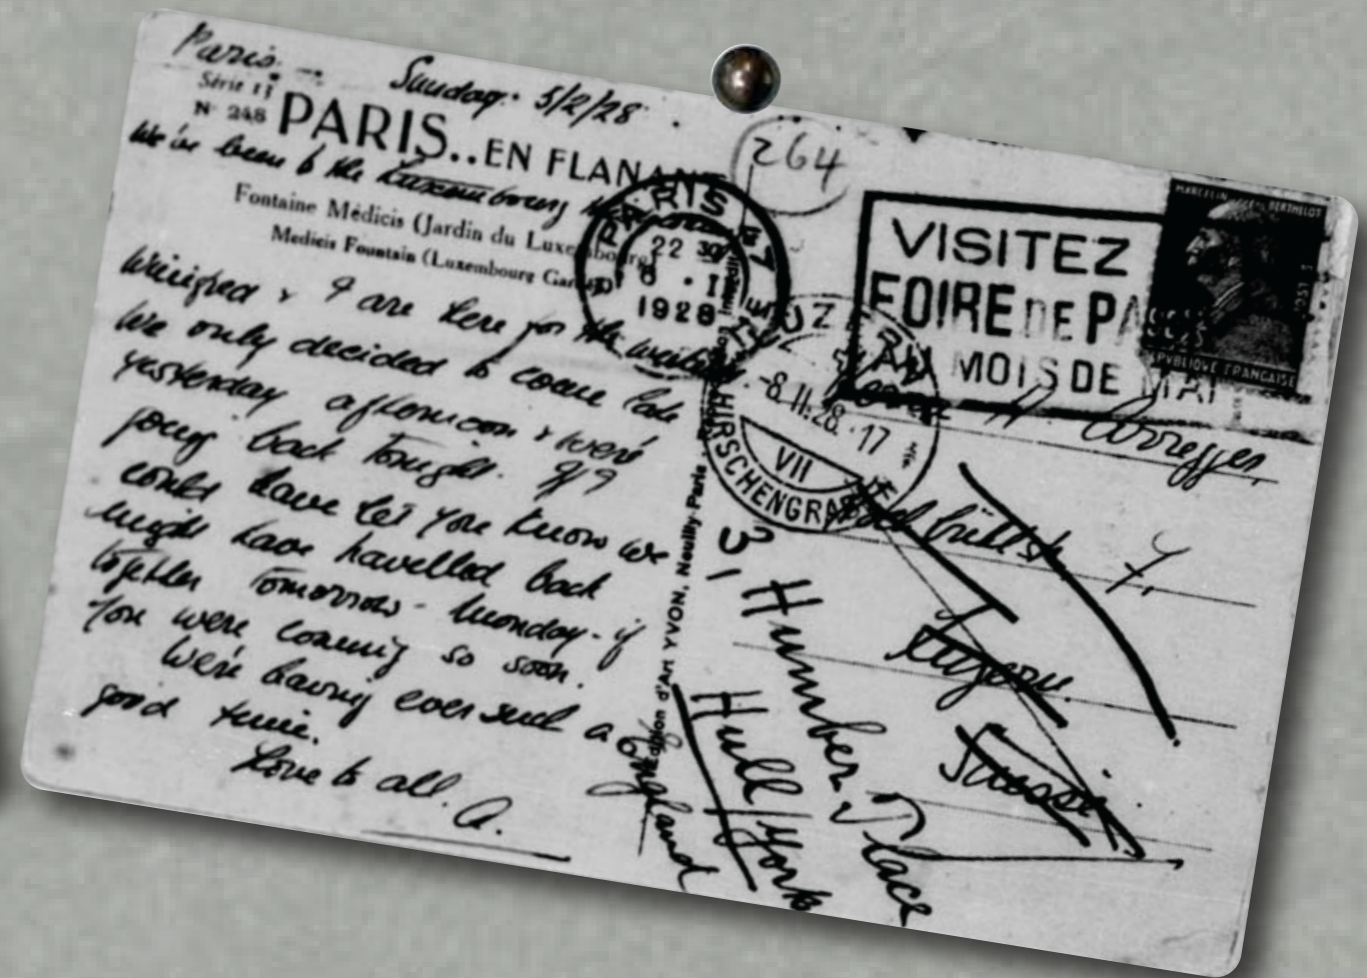 Paris. - Sunday. 5/2/28.
Série 11
N° 248
PARIS..EN FLANANT
We've been to the Luxembourg
Fontaine Médicis (Jardin du Luxembourg)
Medicis Fountain (Luxembourg Garden)
Winifred & I are here for the
We only decided to come late
yesterday afternoon & we're
going back tonight. If I
could have let you know we
might have travelled back
together tomorrow - Monday - if
you were coming so soon.
We're having ever such a
good time.
Love to all.
A.
264
PARIS
22 30
8 · II
1928
VISITEZ
FOIRE DE PA
MOIS DE MAI
MARCELIN BERTHELOT
REPVBLIQVE FRANCAISE
LUZERN
-8.II.28.-17
VII
HIRSCHENGRABEN
d'Art YVON, Neuilly-Paris
Luzern
Suisse
31 Humber Place
Hull / York
England